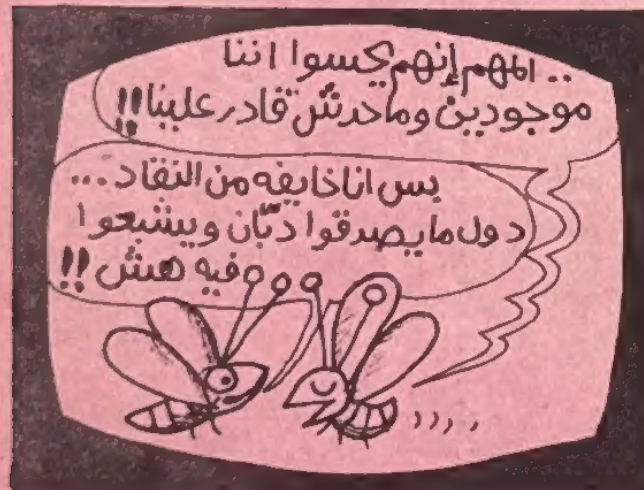 .. المهم إنهم يحسوا اننا
موجودين وماحدش قادر علينا!!
بس انا خايفه من النقاد...
دول مايصدقوا دبّان ويشبعوا
فيه هش!!